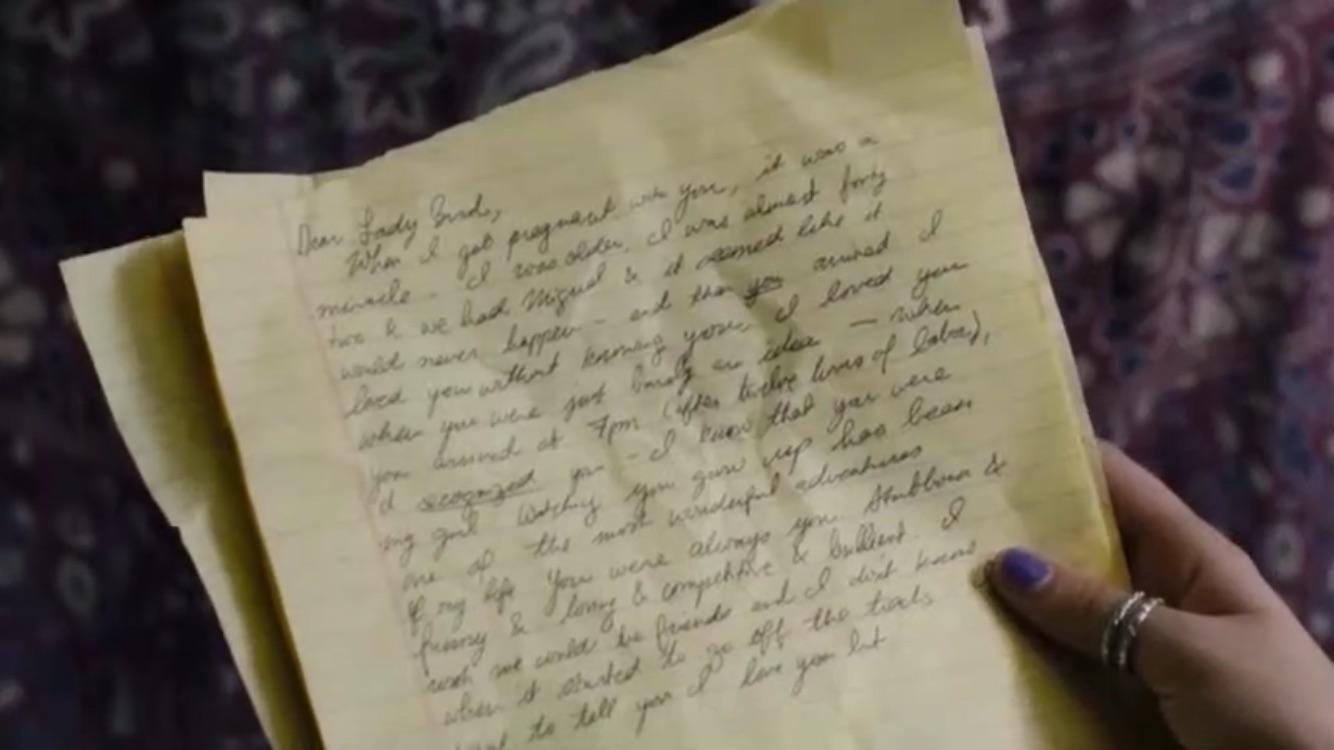 Dear Lady Bird,
When I got pregnant with you, it was a
miracle - I was older, I was almost forty
two & we had Miguel & it seemed like it
would never happen - and then you arrived I
loved you without knowing you. I loved you
when you were just barely an idea — when
you arrived at 7pm (after twelve hours of labor),
I'd recognized you - I knew that you were
my girl. Watching you grow up has been
one of the most wonderful adventures
of my life You were always you. Stubborn &
funny & loving & competitive & brilliant. I
wish we would be friends and I don't know
when it started to go off the tracks
to tell you I love you but